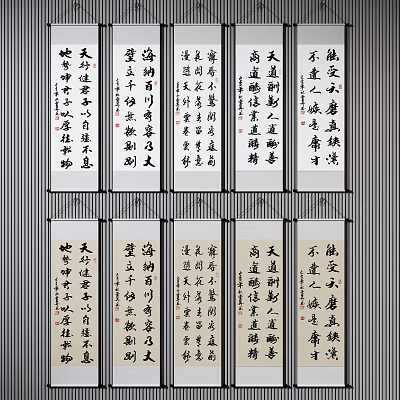 天行健君子以自强不息
地势坤君子以厚德载物
海纳百川有容乃大
壁立千仞无欲则刚
宠辱不惊闲看庭前
花开花落去留无意
漫随天外云卷云舒
天道酬勤人道酬善
商道酬信业道酬精
能受天磨真铁汉
不遭人嫉是庸才
天行健君子以自强不息
地势坤君子以厚德载物
海纳百川有容乃大
壁立千仞无欲则刚
宠辱不惊闲看庭前
花开花落去留无意
漫随天外云卷云舒
天道酬勤人道酬善
商道酬信业道酬精
能受天磨真铁汉
不遭人嫉是庸才